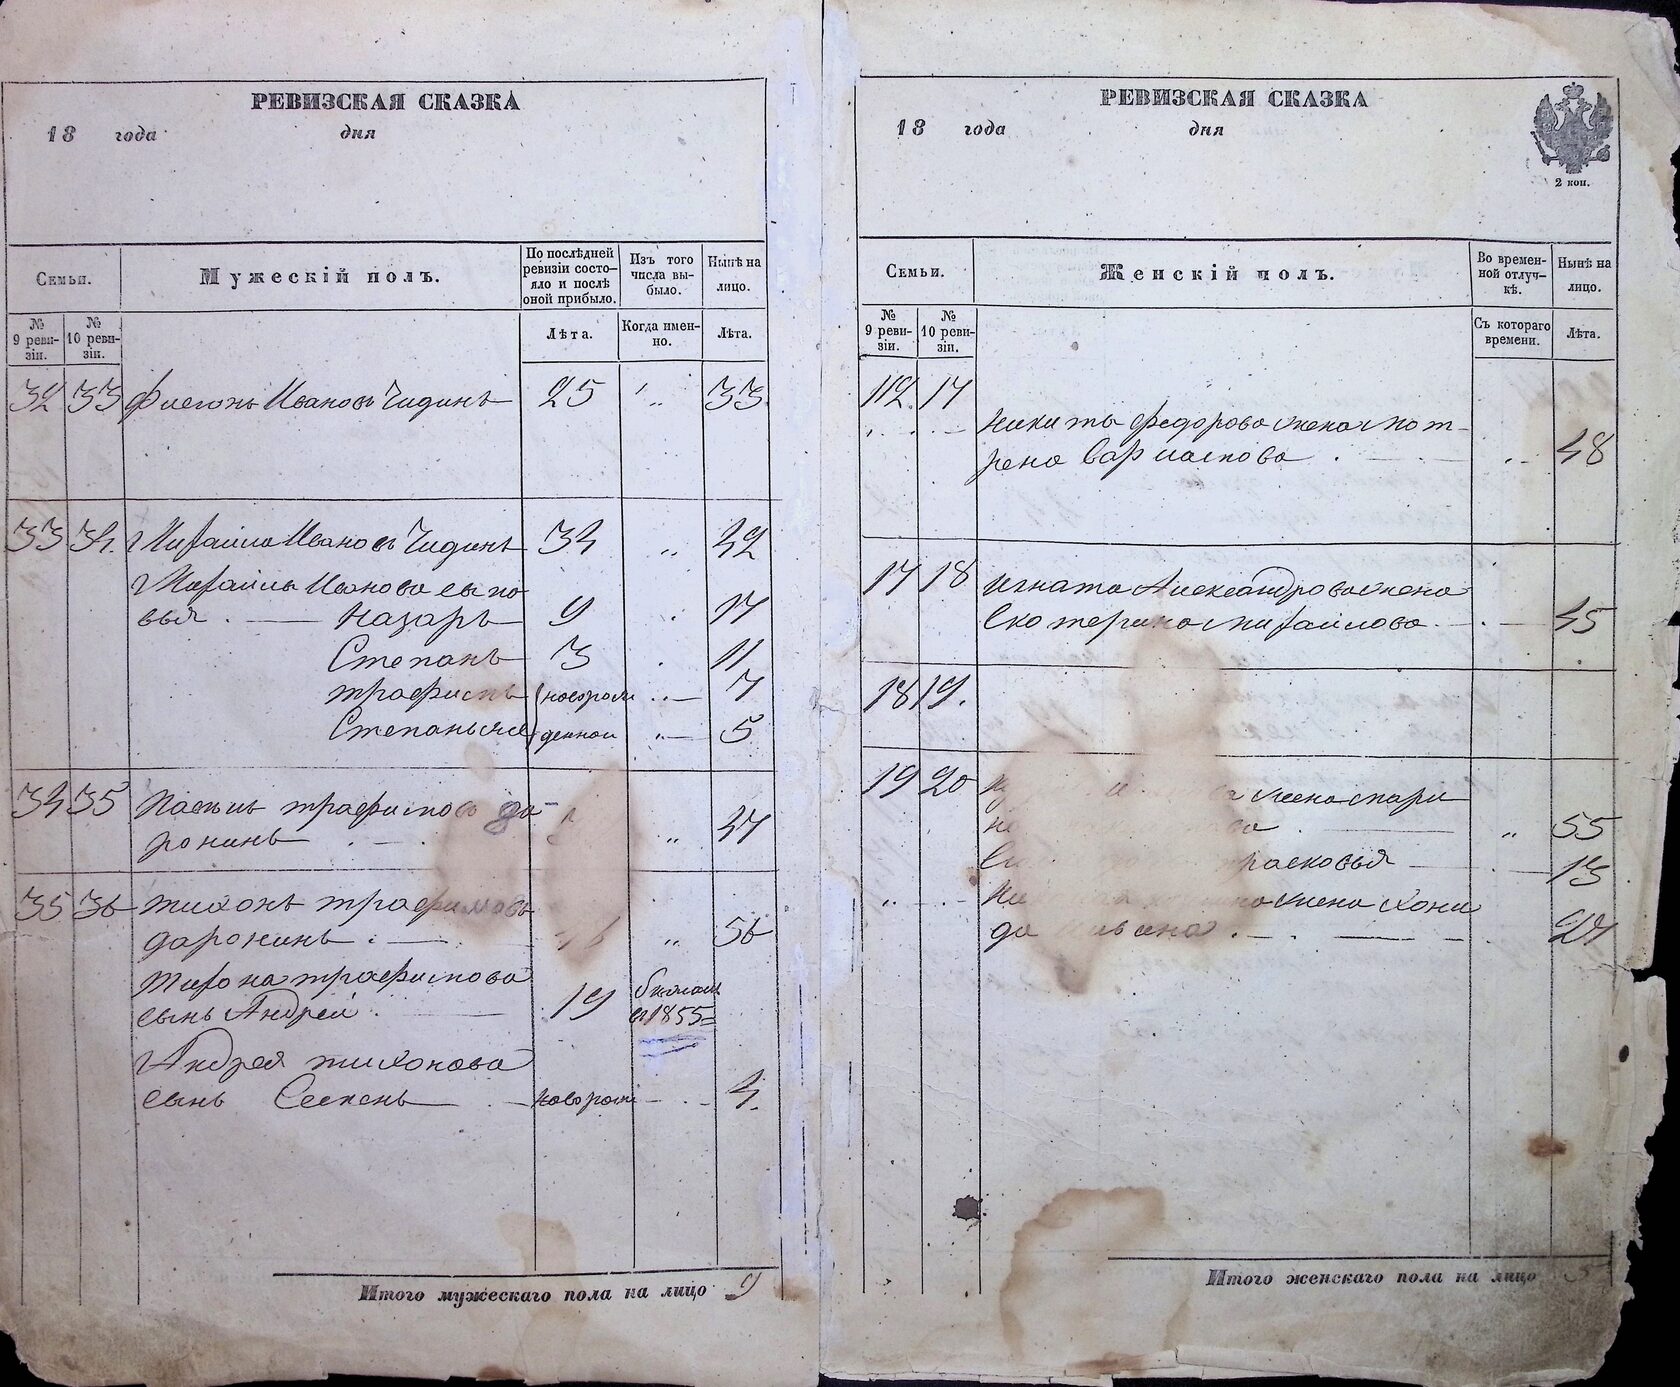 РЕВИЗСКАЯ СКАЗКА
18 года дня
Семьи.
Мужескій полъ.
По послѣдней ревизіи состо-
яло и послѣ
оной прибыло.
Изъ того
числа вы-
было.
Нынѣ на
лицо.
№
9 реви-
зіи.
№
10 реви-
зіи.
Лѣта.
Когда имен-
но.
Лѣта.
32 33 Ивановъ Чидинъ 25 „ 33
33 34. Михайла Ивановъ Чидинъ 34 „ 42
Михайлы Иванова сыно
вья . — Назаръ 9 . 17
Степанъ 3 . 11
трафимъ (новорож „ — 7
Степанъ же) денной „ — 5
34 35 трафимовъ да
ронинъ . — „ 47
35 36 тихонъ трафимовъ
даронинъ . — „ 56
Тихона трафимова
сынъ Андрей . — 19 1855
Андрея тихонова
сынъ — новорож — . — 4.
Итого мужескаго пола на лицо 9
РЕВИЗСКАЯ СКАЗКА
18 года дня
2 коп.
Семьи.
Женскій полъ.
Во времен-
ной отлуч-
кѣ.
Нынѣ на
лицо.
№
9 реви-
зіи.
№
10 реви-
зіи.
Съ котораго
времени.
Лѣта.
112. 17
Никиты федорова жена мат-
рена . — 48
17 18 Игната Александрова жена
Екатерина михайлова . — 45
18 19.
19 20 жена мари
„ 55
прасковья — 13
жена
. — 27
Итого женскаго пола на лицо 5